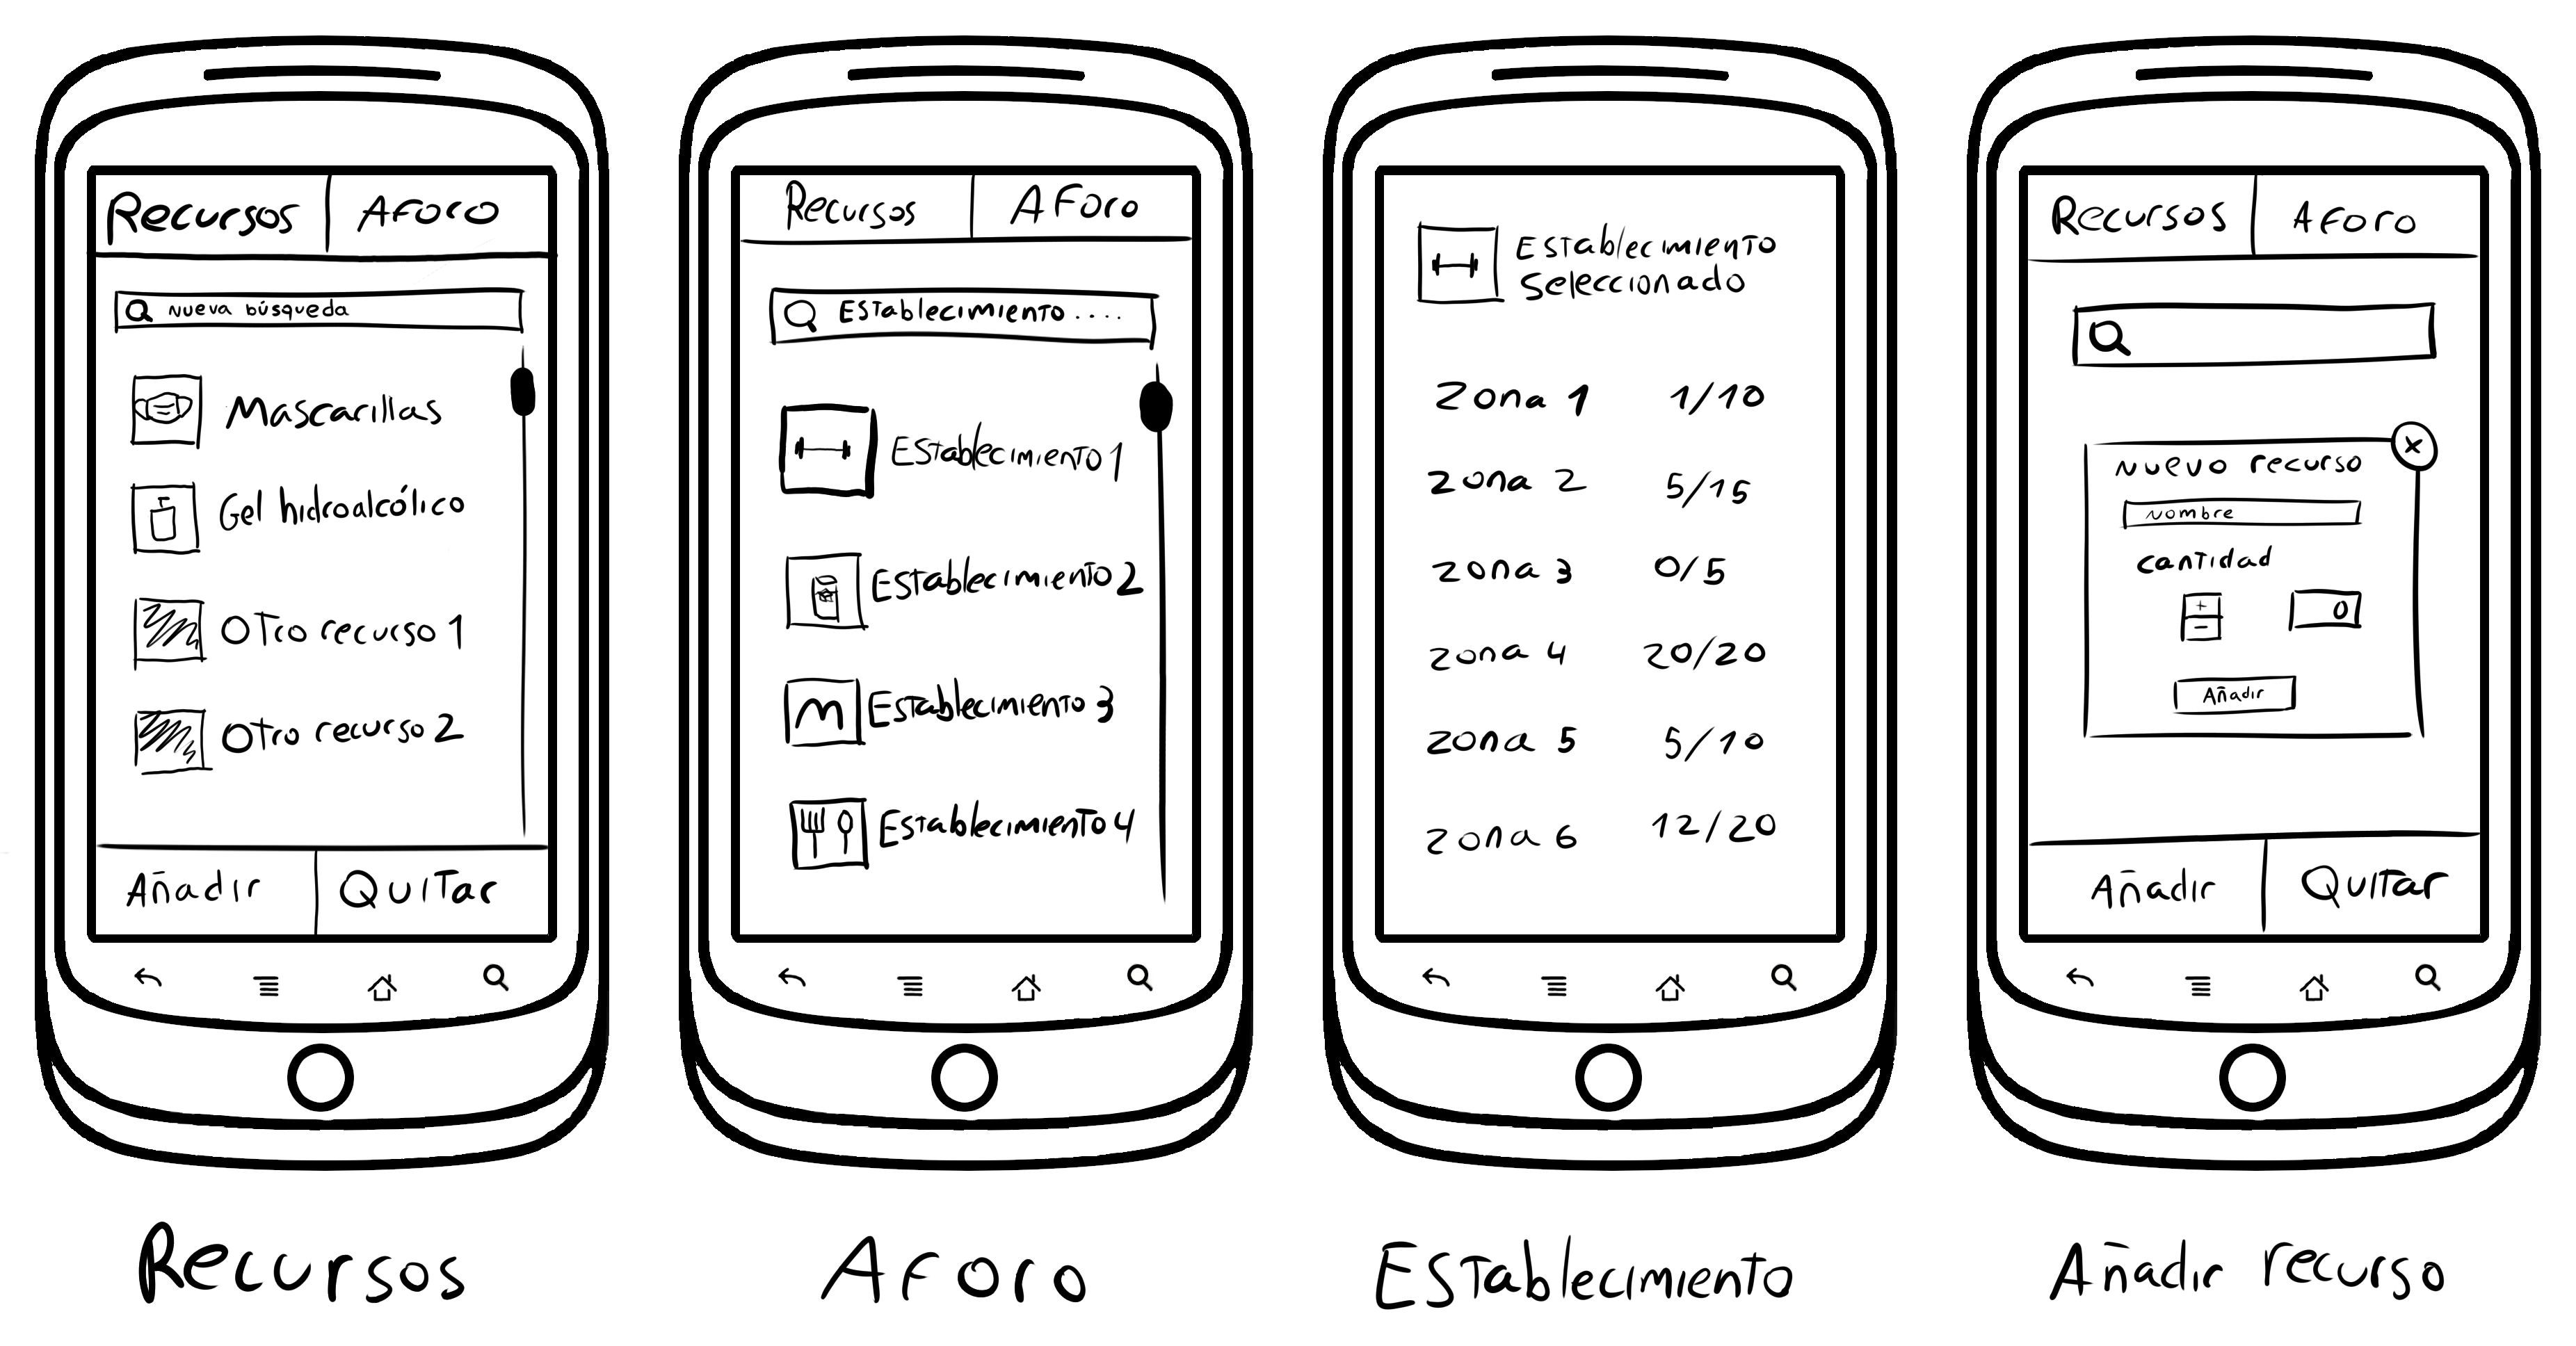 Recursos Aforo
Nueva búsqueda
Mascarillas
Gel hidroalcólico
Otro recurso 1
Otro recurso 2
Añadir Quitar
Recursos
Recursos Aforo
Establecimiento ....
Establecimiento 1
Establecimiento 2
Establecimiento 3
Establecimiento 4
Aforo
Establecimiento
Seleccionado
Zona 1 1/10
Zona 2 5/15
Zona 3 0/5
Zona 4 20/20
Zona 5 5/10
Zona 6 12/20
Establecimiento
Recursos Aforo
Nuevo recurso
Nombre
Cantidad
+
-
0
Añadir
Añadir Quitar
Añadir recurso